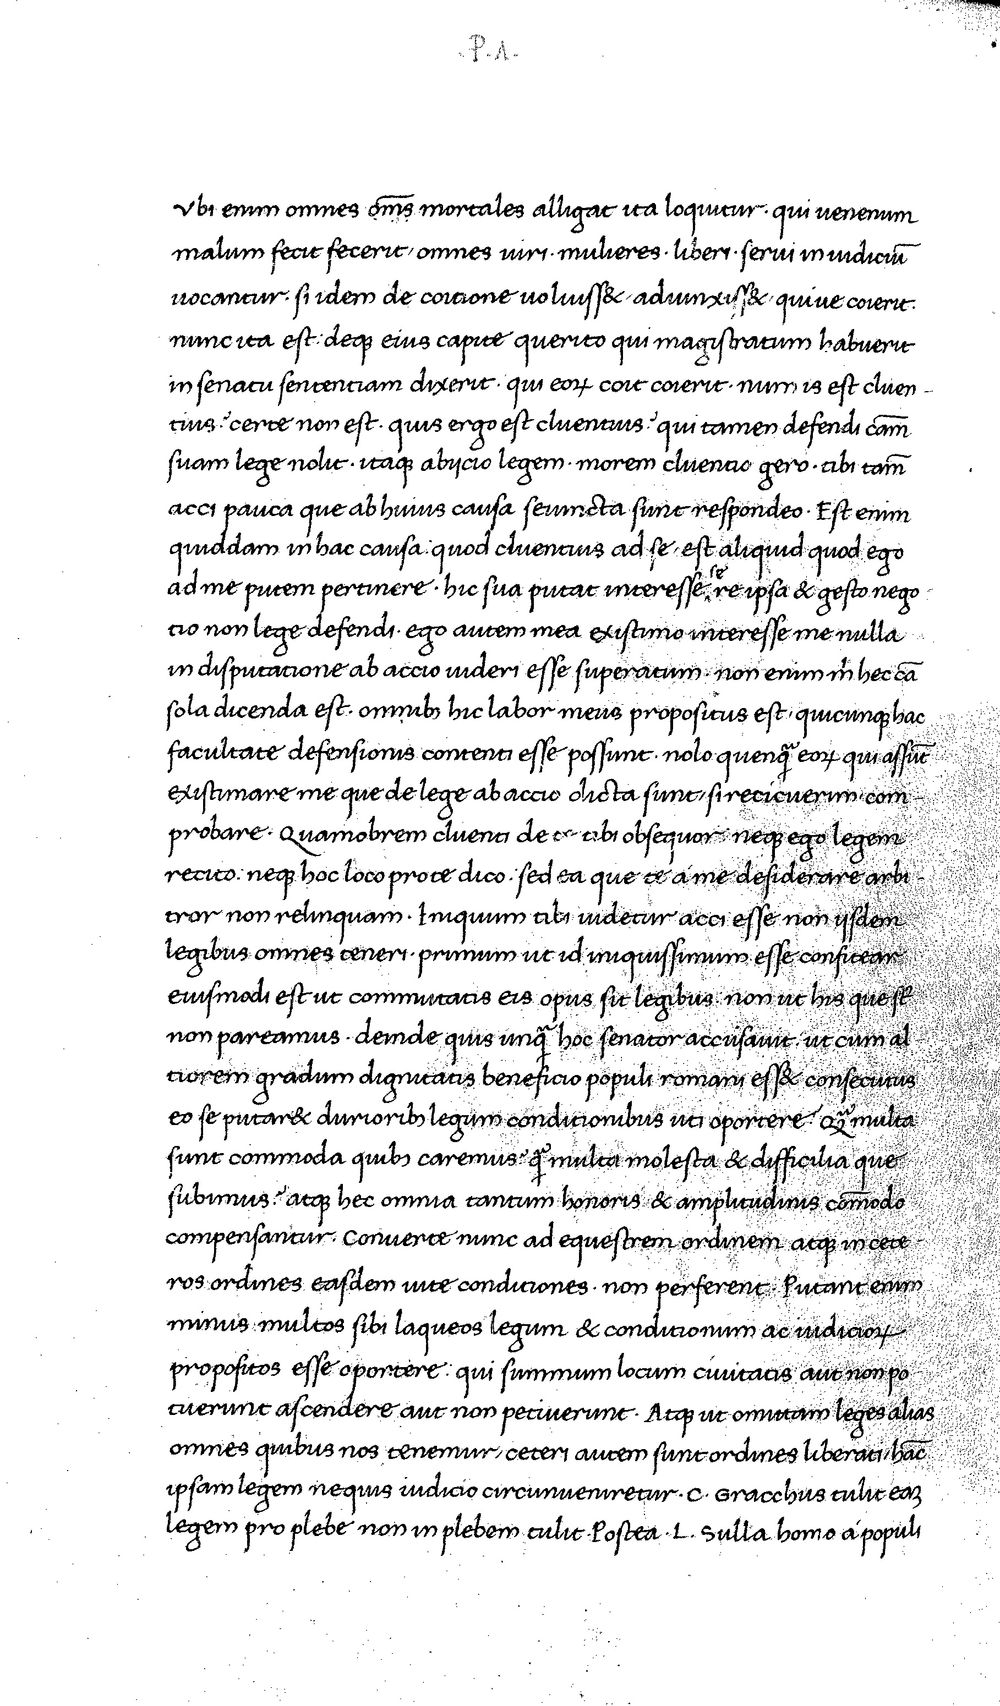 .P.A.
Vbi enim omnes om̄s mortales alligat ita loquitur· qui uenenum
malum fecit fecerit/ omnes uiri· mulieres· liberi· serui in iudiciū
uocantur· si idem de coitione uoluiss&/ adiunxiss&/ quiue coierit·
nunc ita est· deqꝫ eius capite querito qui magistratum habuerit
in senatu sententiam dixerit· qui eoꝝ coit coierit· num is est cluen-
tius? certe non est· quis ergo est cluentius? qui tamen defendi cām
suam lege nolit· itaqꝫ abijcio legem· morem cluentio gero· tibi tam̄
acci pauca que ab huius causa seiuncta sunt respondeo· Est enim
quiddam in hac causa· quod cluentius ad se/ est aliquid quod ego
ad me putem pertinere· hic sua putat interesse se re ipsa & gesto nego
tio non lege defendi· ego autem mea existimo interesse me nulla
in disputatione ab accio uideri esse superatum· non enim m̄ hec cā
sola dicenda est· omnibꝫ hic labor meus propositus est/ quicunqꝫ hac
facultate defensionis contenti esse possunt· nolo quenꝗ̄ eoꝝ qui assūt
existimare me que de lege ab accio dicta sunt/ si reticuerim com-
probare· Quamobrem cluenti de t- tibi obsequor· neqꝫ ego legem
recito· neqꝫ hoc loco pro te dico· sed ea que te a me desiderare arbi-
tror non relinquam· Iniquum tibi uidetur acci esse non ijsdem
legibus omnes teneri· primum ut id iniquissimum esse confitear
eiusmodi est ut commutatis eis opus sit legibus· non ut his que st̄
non pareamus· deinde quis unꝗ̄ hoc senator accusauit· ut cum al
tiorem gradum dignitatis beneficio populi romani ess& consecutus
eo se putar& durioribꝫ legum conditionibus uti oportere? Qꝫ̄ multa
sunt commoda quibꝫ caremus? ꝗ̄ multa molesta & difficilia que
subimus? atqꝫ hec omnia tantum honoris & amplitudinis cōmodo
compensantur· Conuerte nunc ad equestrem ordinem atqꝫ in cete-
ros ordines easdem uite conditiones· non perferent· Putant enim
minus multos sibi laqueos legum & conditionum ac iudicioꝝ
propositos esse oportere· qui summum locum ciuitatis aut non po
tuerunt ascendere aut non petiuerunt· Atqꝫ ut omittam leges alias
omnes quibus nos tenemur/ ceteri autem sunt ordines liberati/ hāc
ipsam legem nequis iudicio circunueniretur· C· Gracchus tulit eaꝫ
legem pro plebe non in plebem tulit· Postea· L· Sulla homo a populi